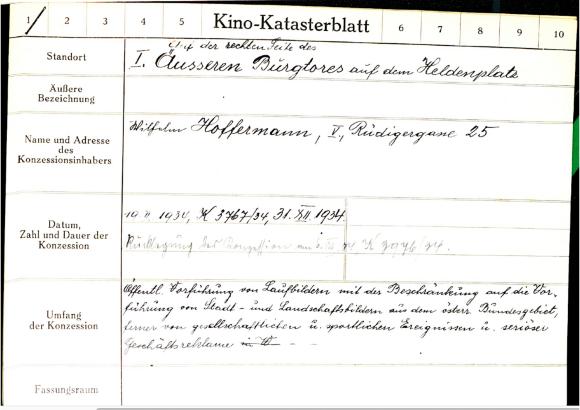 1/ 2 3 4 5 Kino-Katasterblatt 6 7 8 9 10
Standort
Auf der rechten Seite des
I. Äusseren Burgtores auf dem Heldenplatz
Äußere
Bezeichnung
Name und Adresse
des
Konzessionsinhabers
Wilhelm Hoffermann, V., Rüdigergasse 25
Datum,
Zahl und Dauer der
Konzession
19. II. 1934, K 3767/34, 31. XII. 1934.
Rücklegung der Konzession am
Umfang
der Konzession
Öffentl. Vorführung von Laufbildern mit der Beschränkung auf die Vor-
führung von Stadt- und Landschaftsbildern aus dem österr. Bundesgebiet,
ferner von gesellschaftlichen u. sportlichen Ereignissen u. seriöser
Geschäftsreklame
Fassungsraum